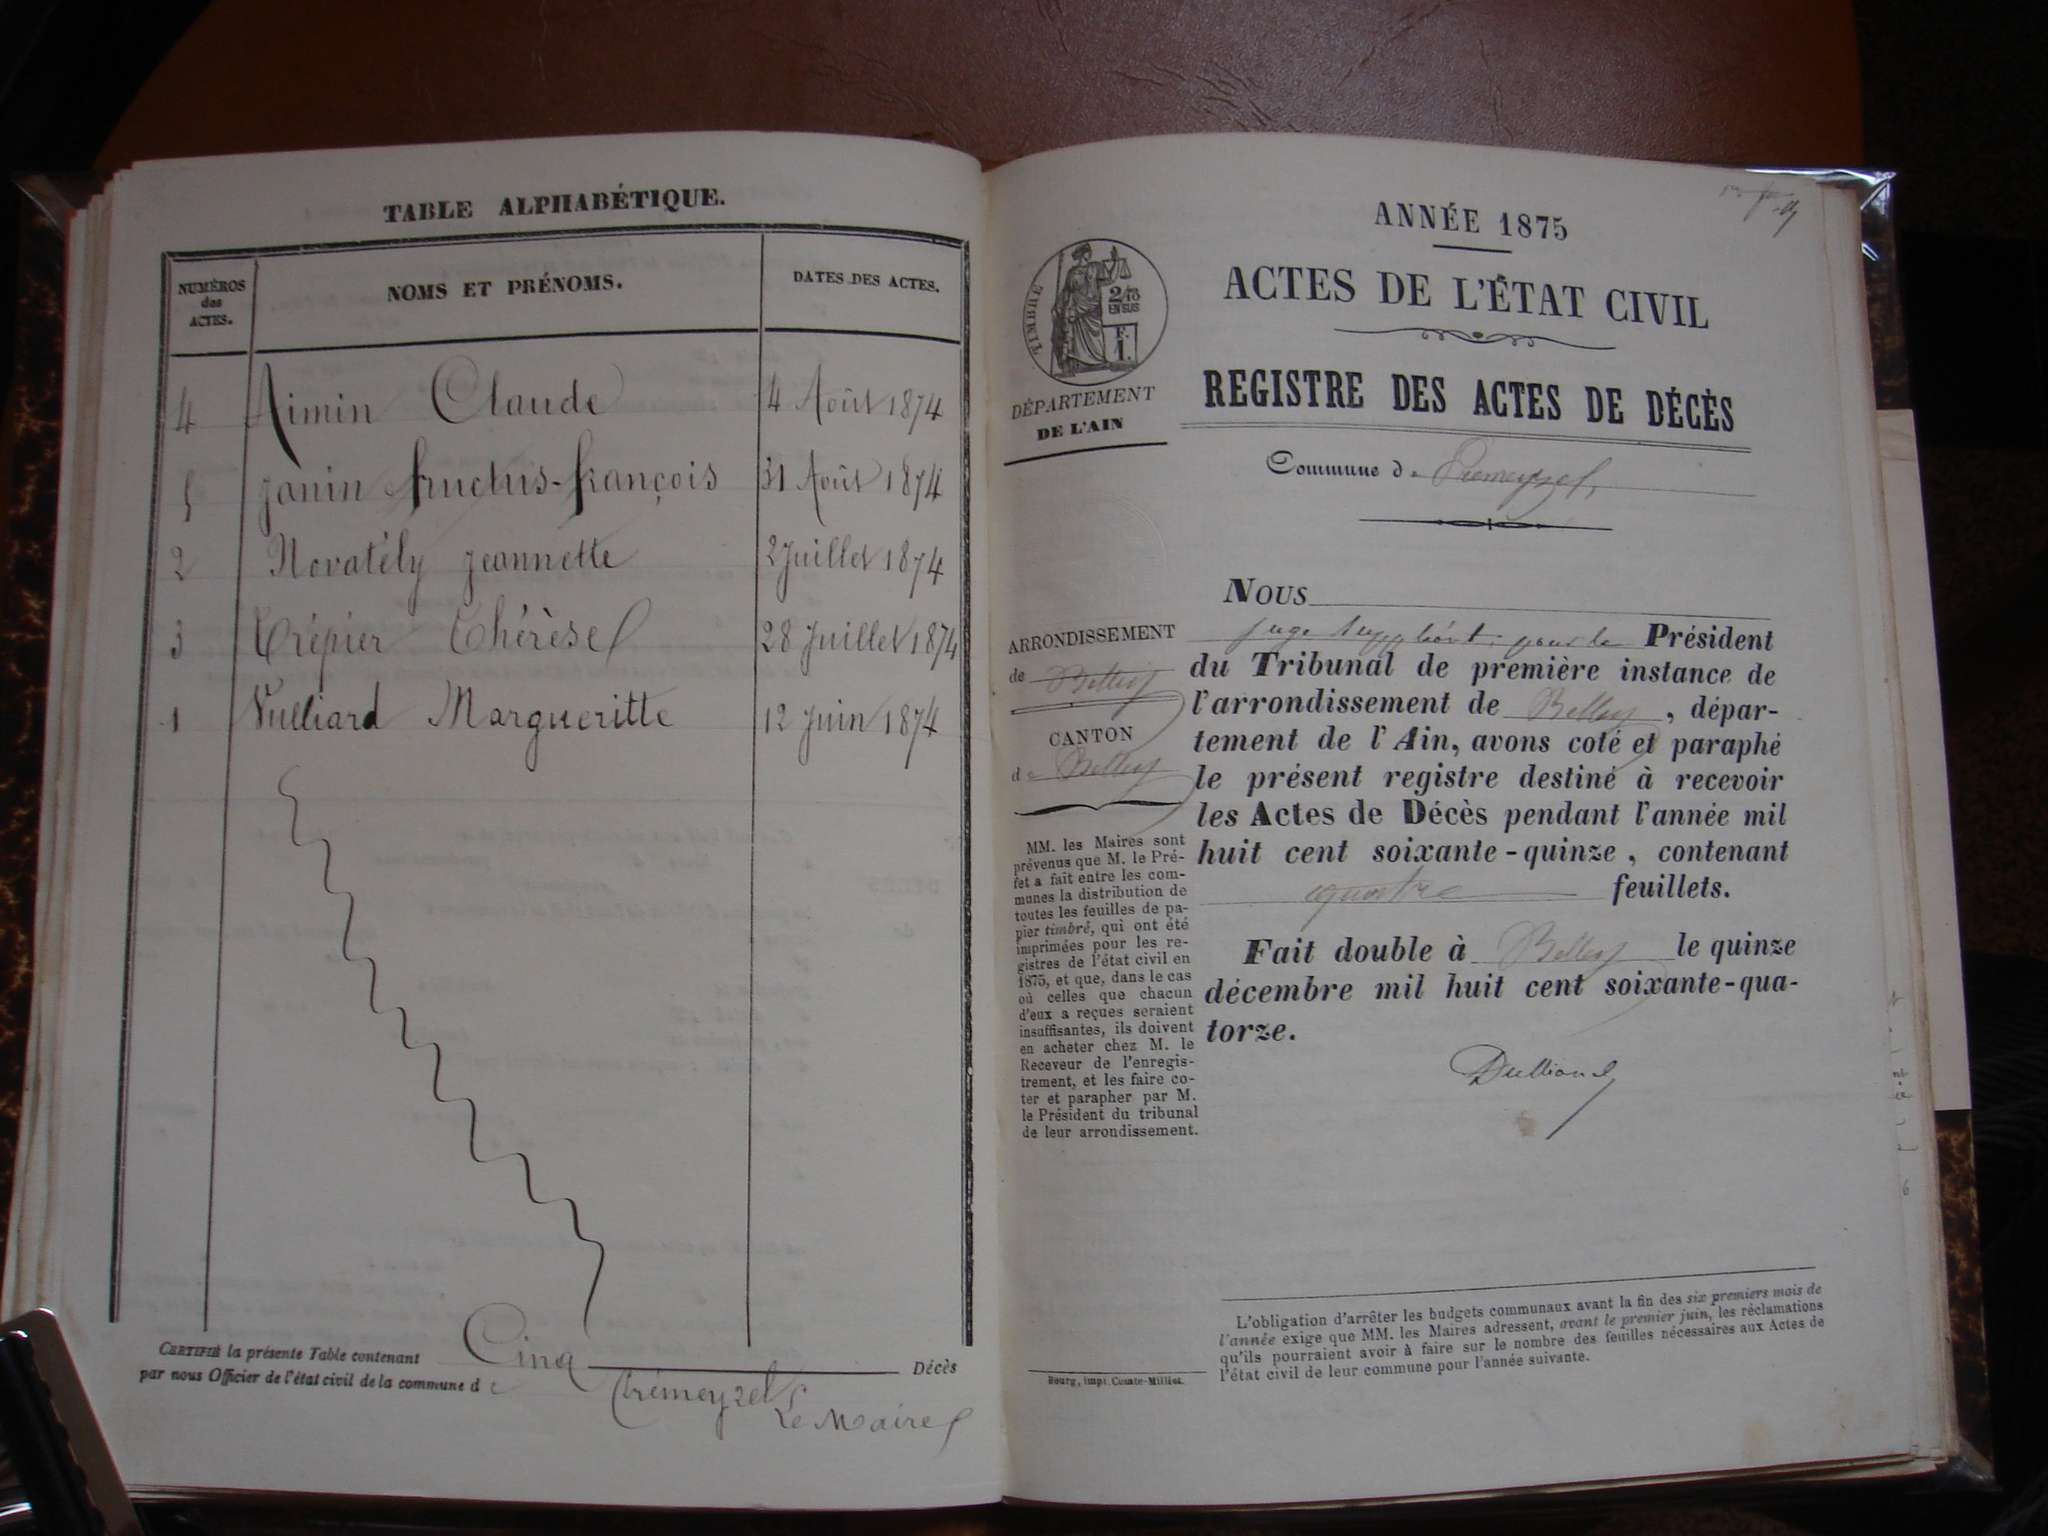 TABLE ALPHABÉTIQUE.
NUMÉROS
des
ACTES.
NOMS ET PRÉNOMS.
DATES DES ACTES.
4 Aimin Claude 4 Août 1874
5 Janin fructus-françois 31 Août 1874
2 Novatély Jeannette 2 Juillet 1874
3 Crépier Thérèse 28 Juillet 1874
1 Vulliard Margueritte 12 Juin 1874
CERTIFIÉ la présente Table contenant Cinq Décès
par nous Officier de l'état civil de la commune de
Prémeyzel
Le Maire
ANNÉE 1875
ACTES DE L'ÉTAT CIVIL
REGISTRE DES ACTES DE DÉCÈS
Commune de Premeyzel
TIMBRE
2/10
EN SUS
F.
1.
DÉPARTEMENT
DE L'AIN
ARRONDISSEMENT
de Belley
CANTON
de Belley
MM. les Maires sont
prévenus que M. le Pré-
fet a fait entre les com-
munes la distribution de
toutes les feuilles de pa-
pier timbré, qui ont été
imprimées pour les re-
gistres de l'état civil en
1875, et que, dans le cas
où celles que chacun
d'eux a reçues seraient
insuffisantes, ils doivent
en acheter chez M. le
Receveur de l'enregis-
trement, et les faire co-
ter et parapher par M.
le Président du tribunal
de leur arrondissement.
NOUS
juge suppléant, pour le Président
du Tribunal de première instance de
l'arrondissement de Belley, dépar-
tement de l'Ain, avons coté et paraphé
le présent registre destiné à recevoir
les Actes de Décès pendant l'année mil
huit cent soixante-quinze, contenant
quatre feuillets.
Fait double à Belley le quinze
décembre mil huit cent soixante-qua-
torze.
L'obligation d'arrêter les budgets communaux avant la fin des six premiers mois de
l'année exige que MM. les Maires adressent, avant le premier juin, les réclamations
qu'ils pourraient avoir à faire sur le nombre des feuilles nécessaires aux Actes de
l'état civil de leur commune pour l'année suivante.
Bourg, impr. Comte-Milliet.